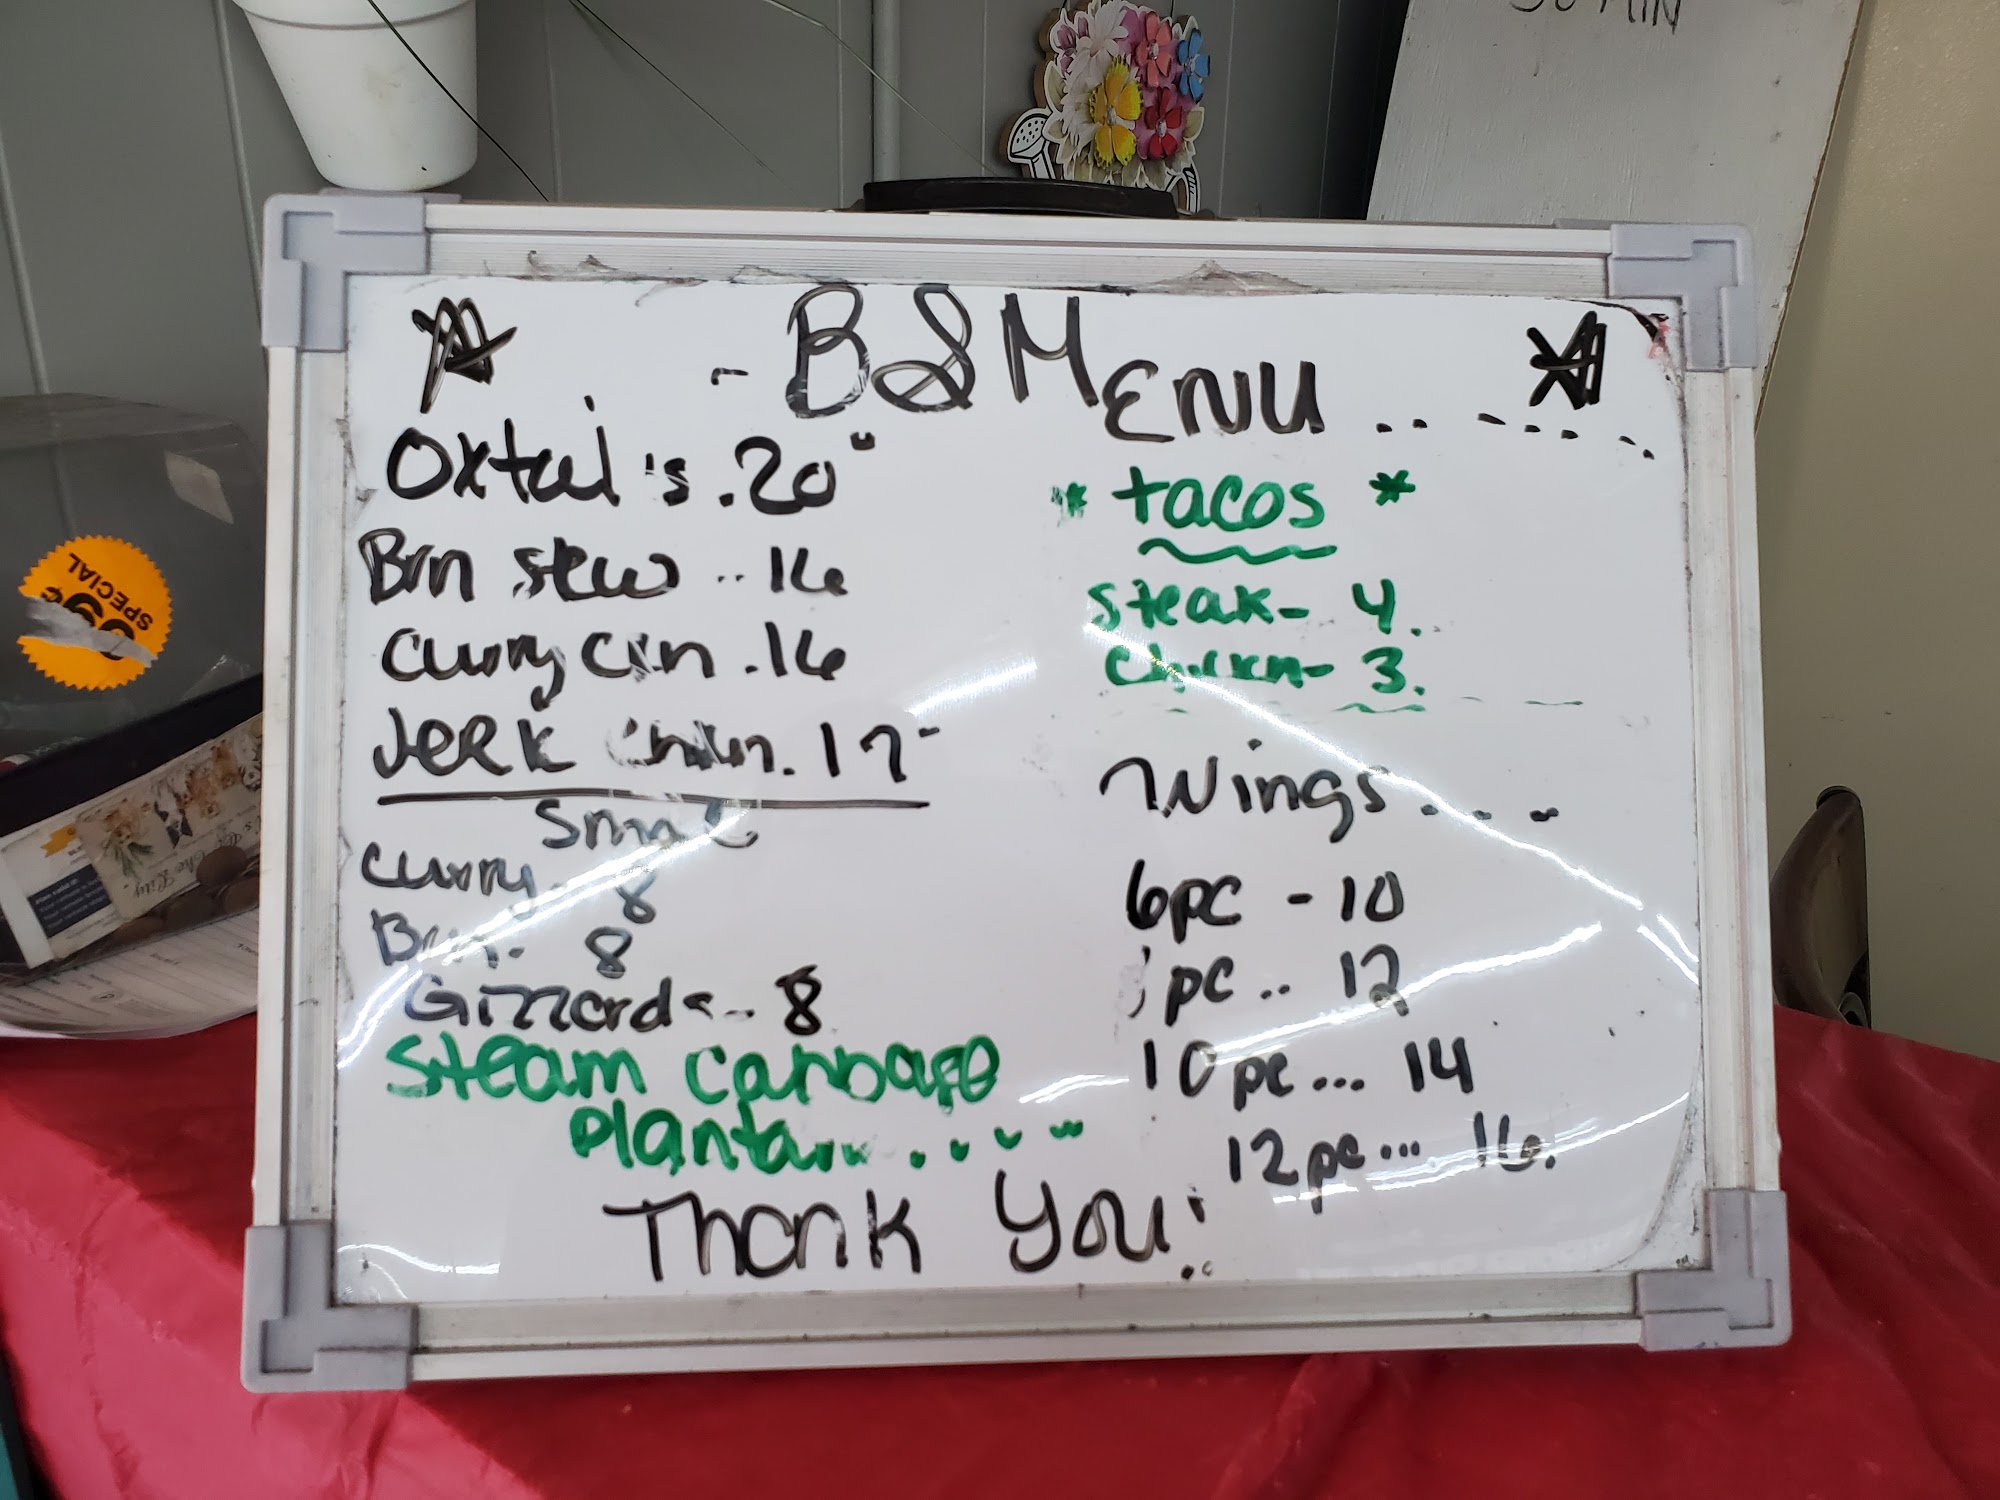 30 MIN
- BS MENU .. - . . - .
Oxtail's .20
Brn stew .. 16
Curry Ckn .16
Jerk . 17 -
Curry. 8
Brn. 8
Gizzards .. 8
Steam Cabbage
Plantain . . . .
* tacos *
Steak - 4.
Chickn - 3.
Wings . . . -
6pc - 10
pc .. 12
10pc ... 14
12pc ... 16.
Thank You!
SPECIAL